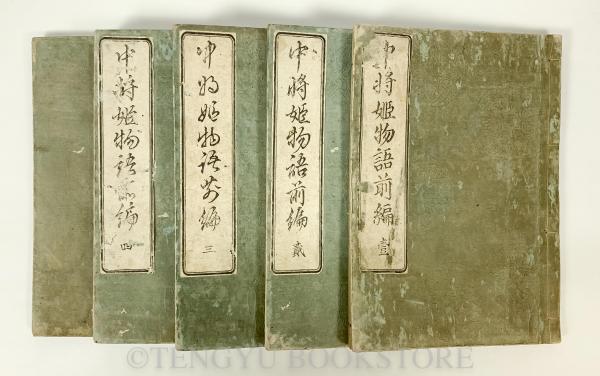 中将姫物語前編 壹
中將姫物語前編 貳
中将姫物語前編 三
中将姫物語前編 四
©TENGYU BOOKSTORE